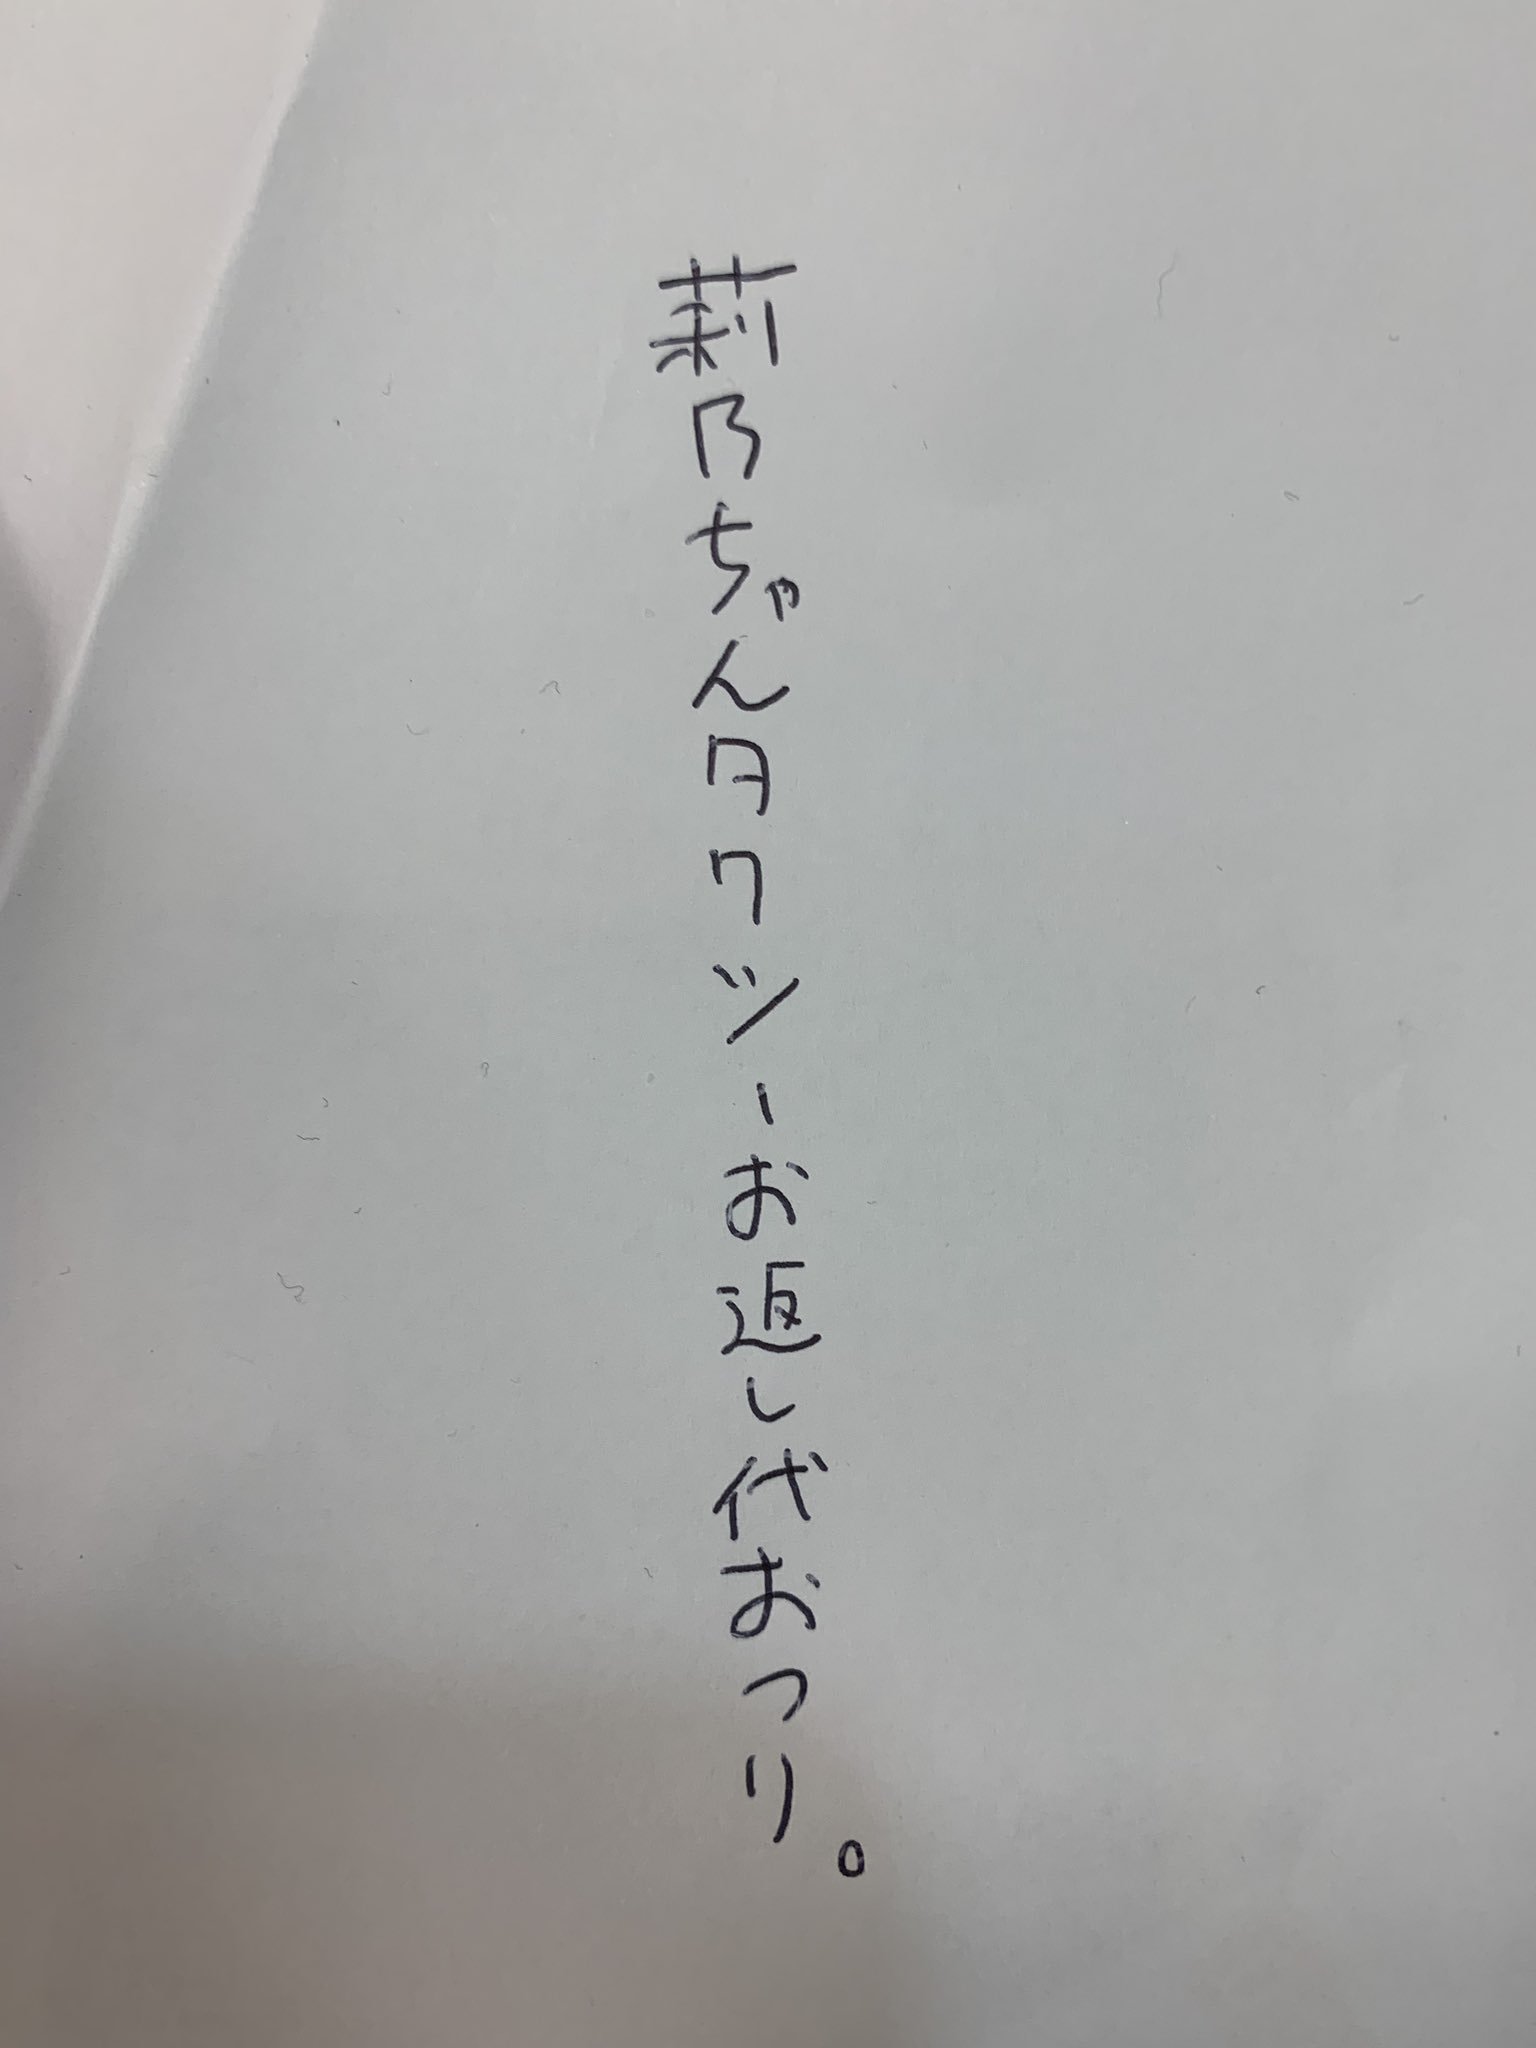 莉乃ちゃんタクツーお返し代おつり。